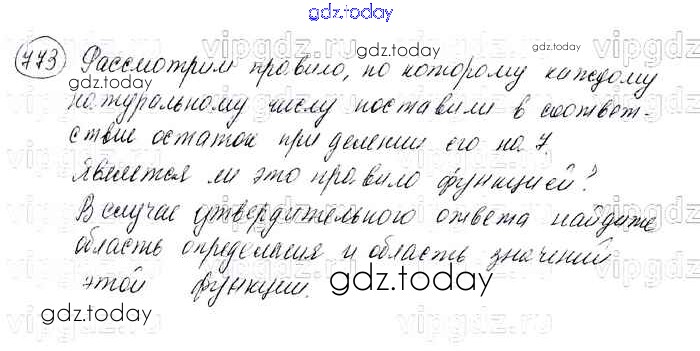 gdz.today
773 Рассмотрим правило, по которому каждому
натуральному числу поставили в соответ-
ствие остаток при делении его на 7.
Является ли это правило функцией?
В случае утвердительного ответа найдите
область определения и область значений
этой функции.
gdz.today
gdz.today
gdz.today
gdz.today
gdz.today
gdz.today
vipgdz.ru
vipgdz.ru